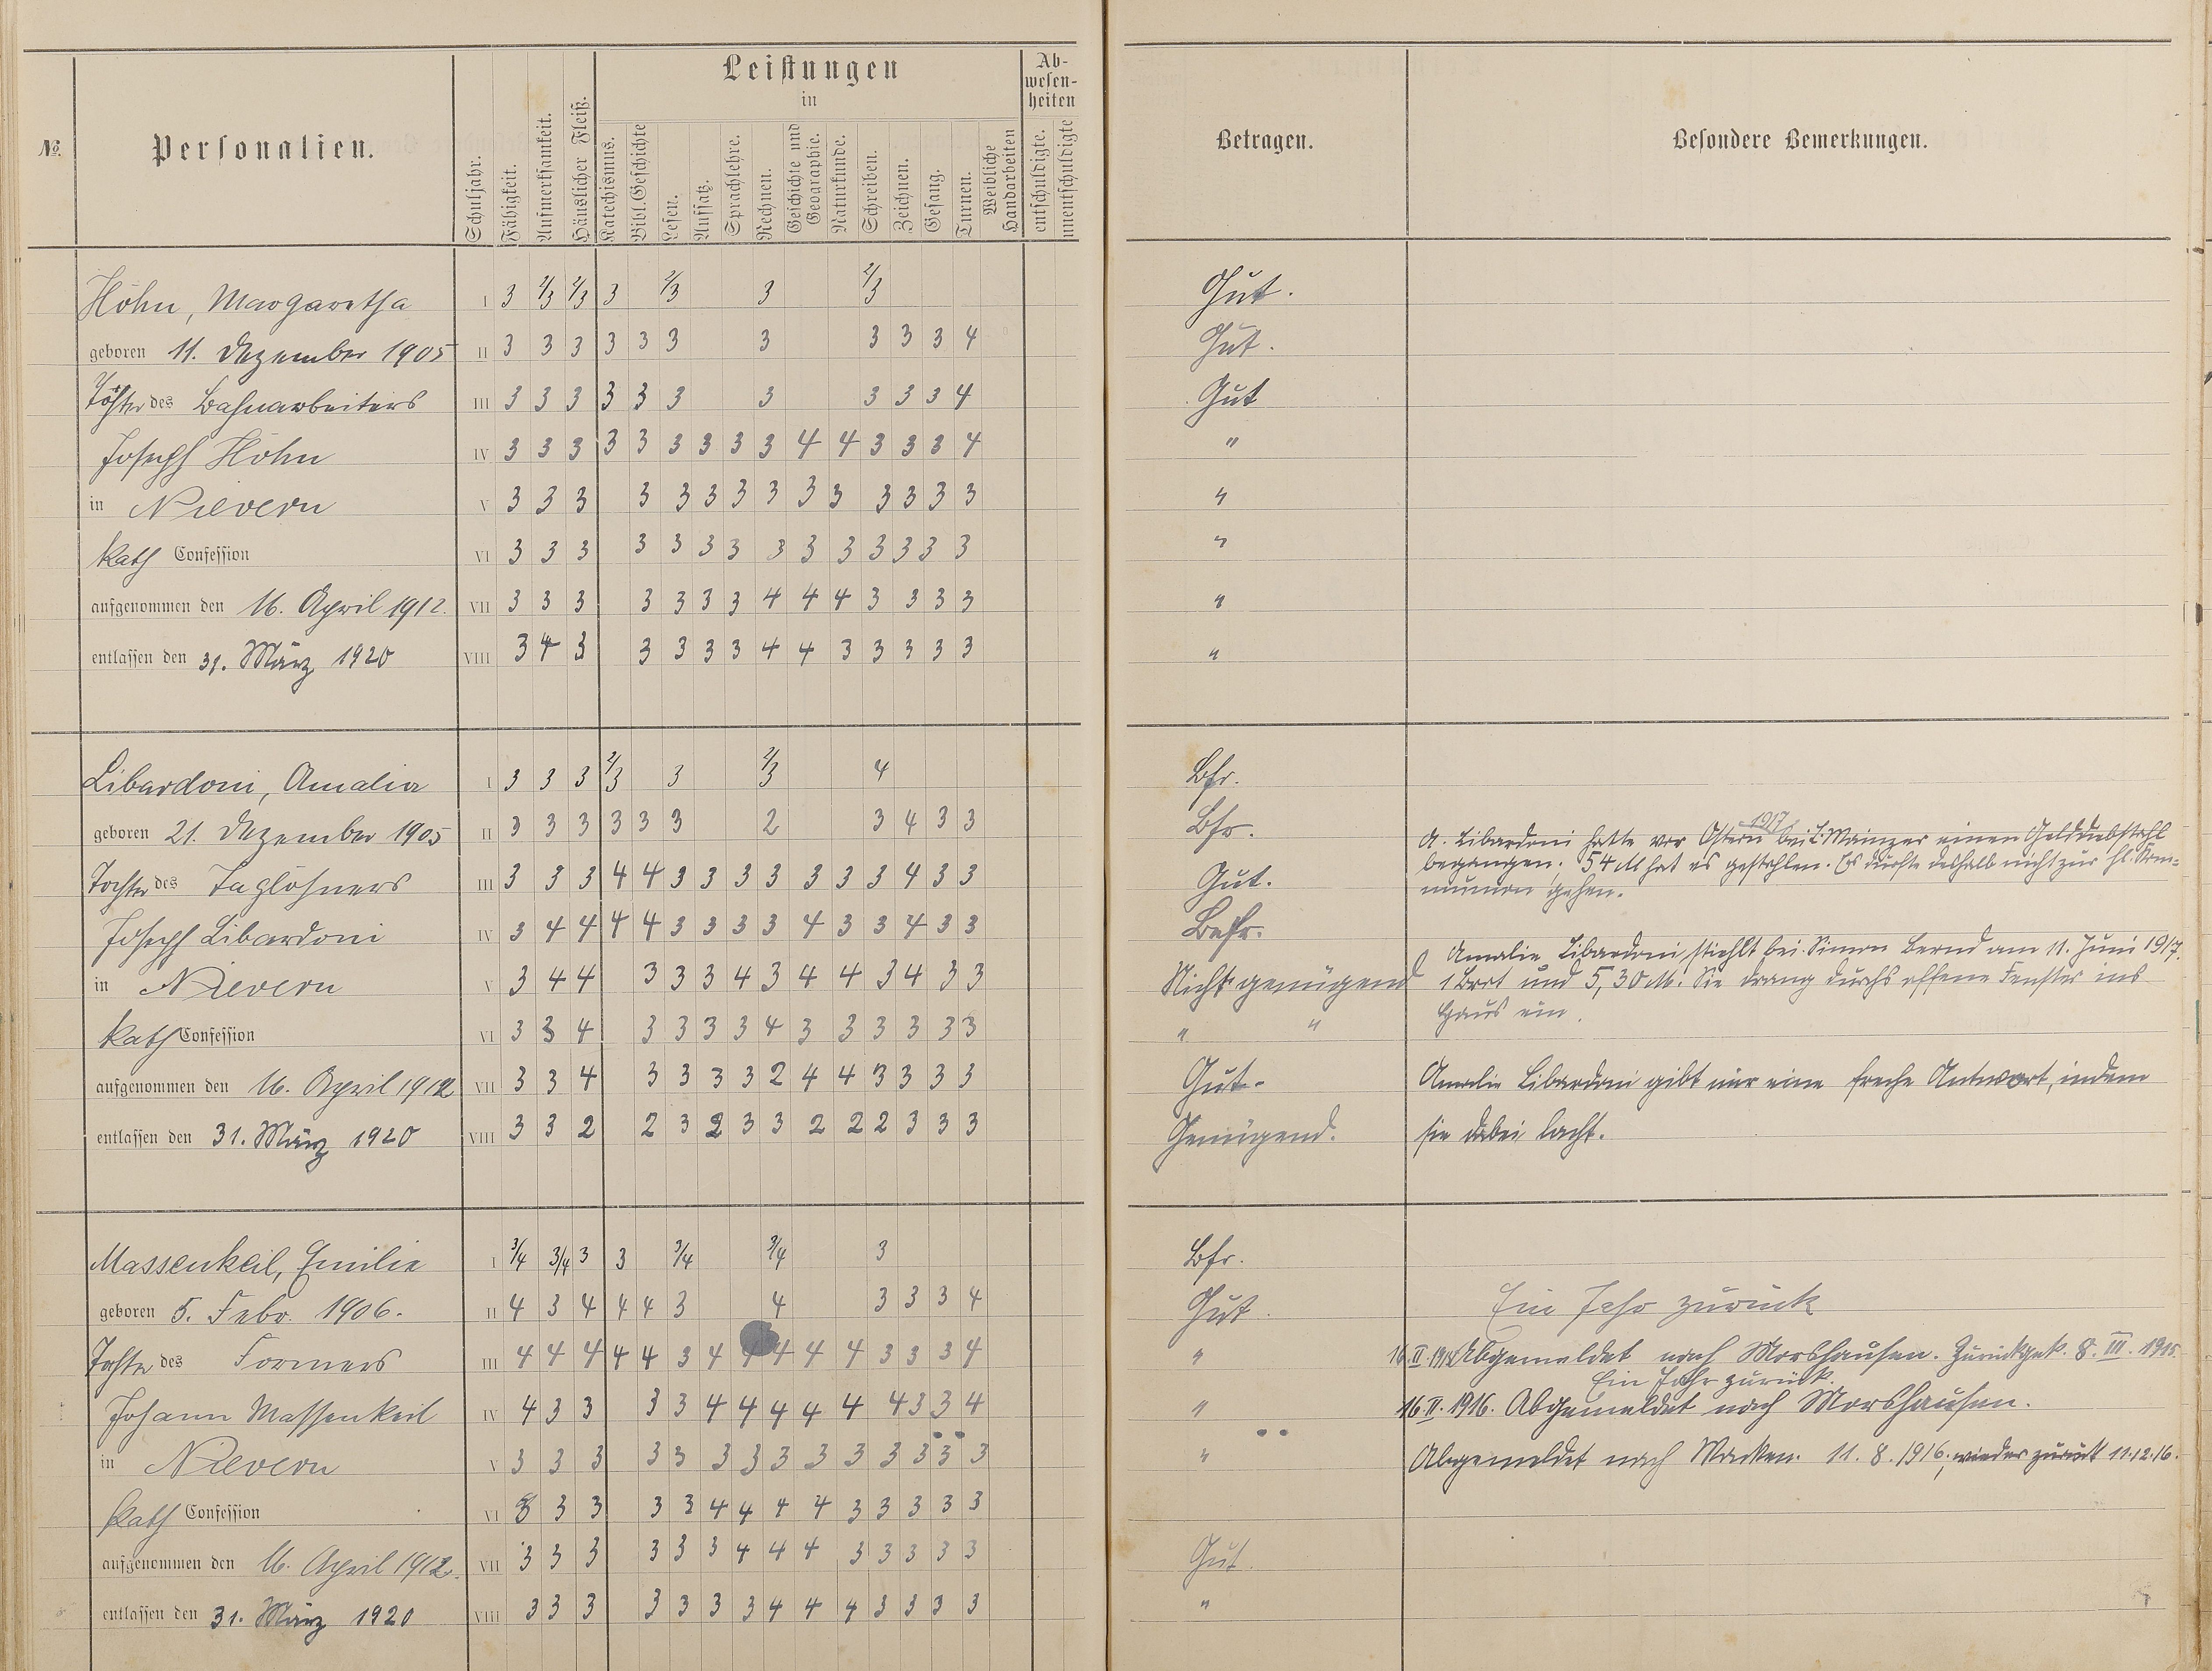 Leistungen
in
Ab-
wesen-
heiten
№.
Personalien.
Schuljahr.
Fähigkeit.
Aufmerksamkeit.
Häuslicher Fleiß.
Katechismus.
Bibl. Geschichte
Lesen.
Aufsatz.
Sprachlehre.
Rechnen.
Geschichte und
Geographie.
Naturkunde.
Schreiben.
Zeichnen.
Gesang.
Turnen.
Weibliche
Handarbeiten
entschuldigte.
unentschuldigte
Betragen.
Besondere Bemerkungen.
Höhn, Margaretha I 3 2/3 2/3 3 2/3 3 2/3 Gut.
geboren 11. Dezember 1905 II 3 3 3 3 3 3 3 3 3 3 4 Gut.
Tochter des Bahnarbeiters III 3 3 3 3 3 3 3 3 3 3 4 Gut
Joseph Höhn IV 3 3 3 3 3 3 3 3 3 4 4 3 3 3 4 "
in Nievern V 3 3 3 3 3 3 3 3 3 3 3 3 3 3 "
kath Confession VI 3 3 3 3 3 3 3 3 3 3 3 3 3 3 "
aufgenommen den 16. April 1912. VII 3 3 3 3 3 3 3 4 4 4 3 3 3 3 "
entlassen den 31. März 1920 VIII 3 4 3 3 3 3 3 4 4 3 3 3 3 3 "
Libardoni, Amalia I 3 3 3 2/3 3 2/3 4 Bfr.
geboren 21. Dezember 1905 II 3 3 3 3 3 3 2 3 4 3 3 Bfr.
Tochter des Taglöhners III 3 3 3 4 4 3 3 3 3 3 3 3 4 3 3 Gut.
Joseph Libardoni IV 3 4 4 4 4 3 3 3 3 4 3 3 4 3 3 Befr.
in Nievern V 3 4 4 3 3 3 4 3 4 4 3 4 3 3 Nicht genügend
kath Confession VI 3 3 4 3 3 3 3 4 3 3 3 3 3 3 " "
aufgenommen den 16. April 1912 VII 3 3 4 3 3 3 3 2 4 4 3 3 3 3 Gut.
entlassen den 31. März 1920 VIII 3 3 2 2 3 2 3 3 2 2 2 3 3 3 Genügend.
1917
A. Libardoni hatte vor Ostern bei L. Mainzer einen Gelddiebstahl
begangen; 54 M hat es gestohlen. Es durfte deshalb nicht zur hl. Kom-
munion gehen.
Amalie Libardoni stiehlt bei Simon Bernd am 11. Juni 1917.
1 Brot und 5,30 M. Sie drang durchs offene Fenster ins
Haus ein.
Amalie Libardoni gibt mir eine freche Antwort, indem
sie dabei lacht.
Massenkeil, Emilie I 3/4 3/4 3 3 3/4 3/4 3 Bfr.
geboren 5. Febr. 1906. II 4 3 4 4 4 3 4 3 3 3 4 Gut. Ein Jahr zurück
Tochter des Formers III 4 4 4 4 4 3 4 4 4 4 4 3 3 3 4 " 16.II.1914 Abgemeldet nach Morshausen. Zurückgek. 8. III. 1915.
Ein Jahr zurück.
Johann Massenkeil IV 4 3 3 3 3 4 4 4 4 4 4 3 3 4 " 16.II.1916. Abgemeldet nach Morshausen.
in Nievern V 3 3 3 3 3 3 3 3 3 3 3 3 3 3 " Abgemeldet nach Macken. 11.8.1916; wieder zurück 11.12.16.
kath Confession VI 3 3 3 3 3 4 4 4 4 3 3 3 3 3
aufgenommen den 16. April 1912. VII 3 3 3 3 3 3 4 4 4 3 3 3 3 3 Gut.
entlassen den 31. März 1920 VIII 3 3 3 3 3 3 3 4 4 4 3 3 3 3 "